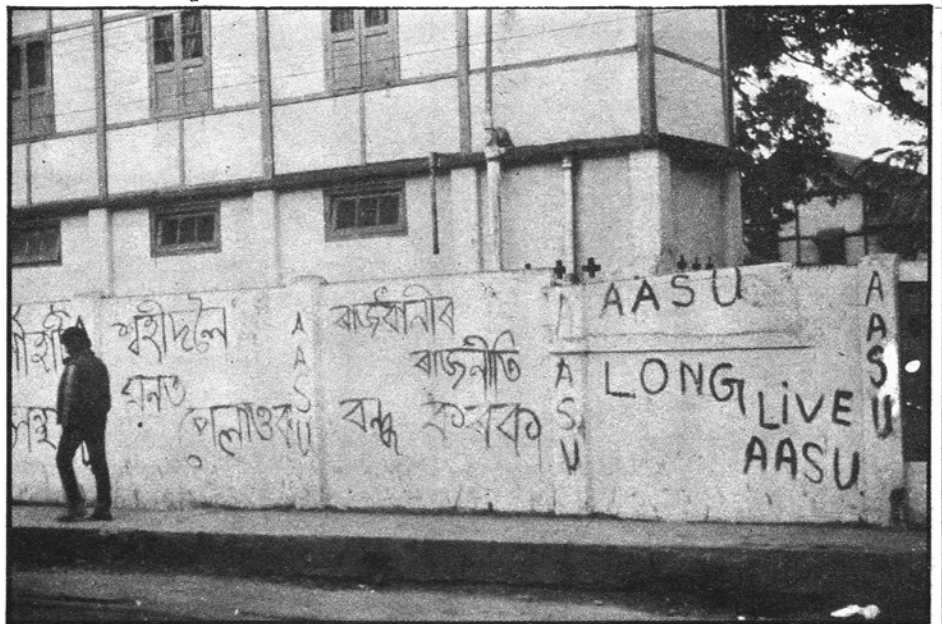 শ্বহীদলৈ
মনত
পেলাওক
AASU
ৰাজধানীৰ
ৰাজনীতি
বন্ধ কৰক
AASU
AASU
LONG
LiVE
AASU
AASU